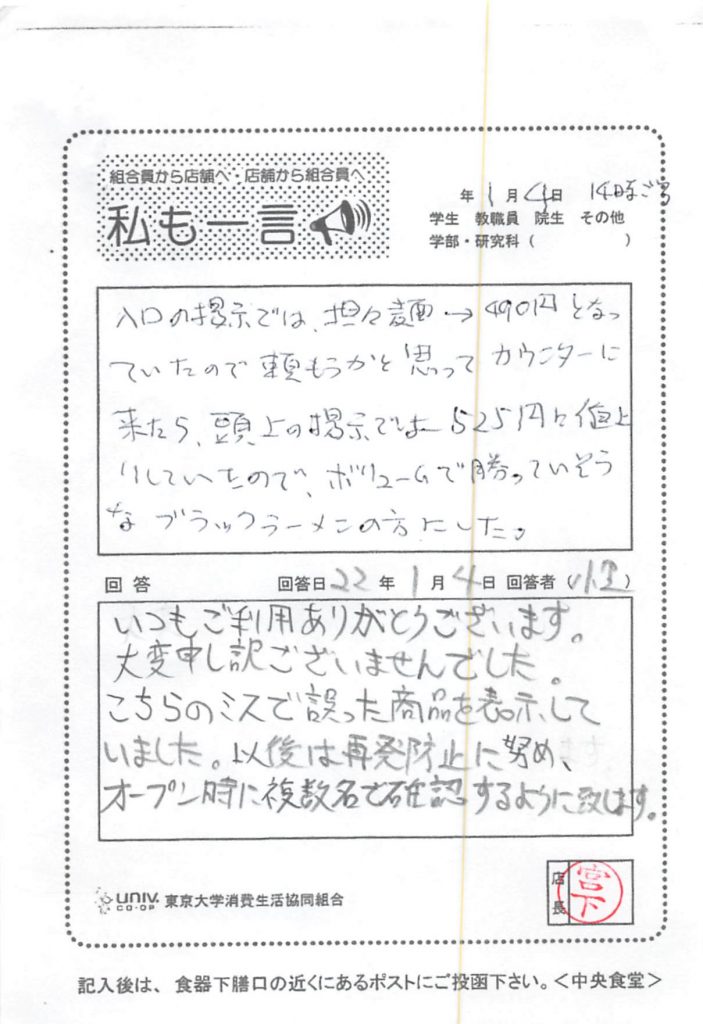 組合員から店舗へ・店舗から組合員へ
私も一言
年 1月4日 14時ごろ
学生 教職員 院生 その他
学部・研究科( )
入口の掲示では、担々麺→490円となっ
ていたので頼もうかと思ってカウンターに
来たら、頭上の掲示では525円と値上
りしていたので、ボリュームで勝っていそう
な ブラックラーメンの方にした。
回答 回答日 22年1月4日 回答者( )
いつもご利用ありがとうございます。
大変申し訳ございませんでした。
こちらのミスで誤った商品を表示して
いました。以後は再発防止に努め、
オープン時に複数名で確認するように致します。
UNIV. CO-OP 東京大学消費生活協同組合
店長 宮下
記入後は、食器下膳口の近くにあるポストにご投函下さい。<中央食堂>